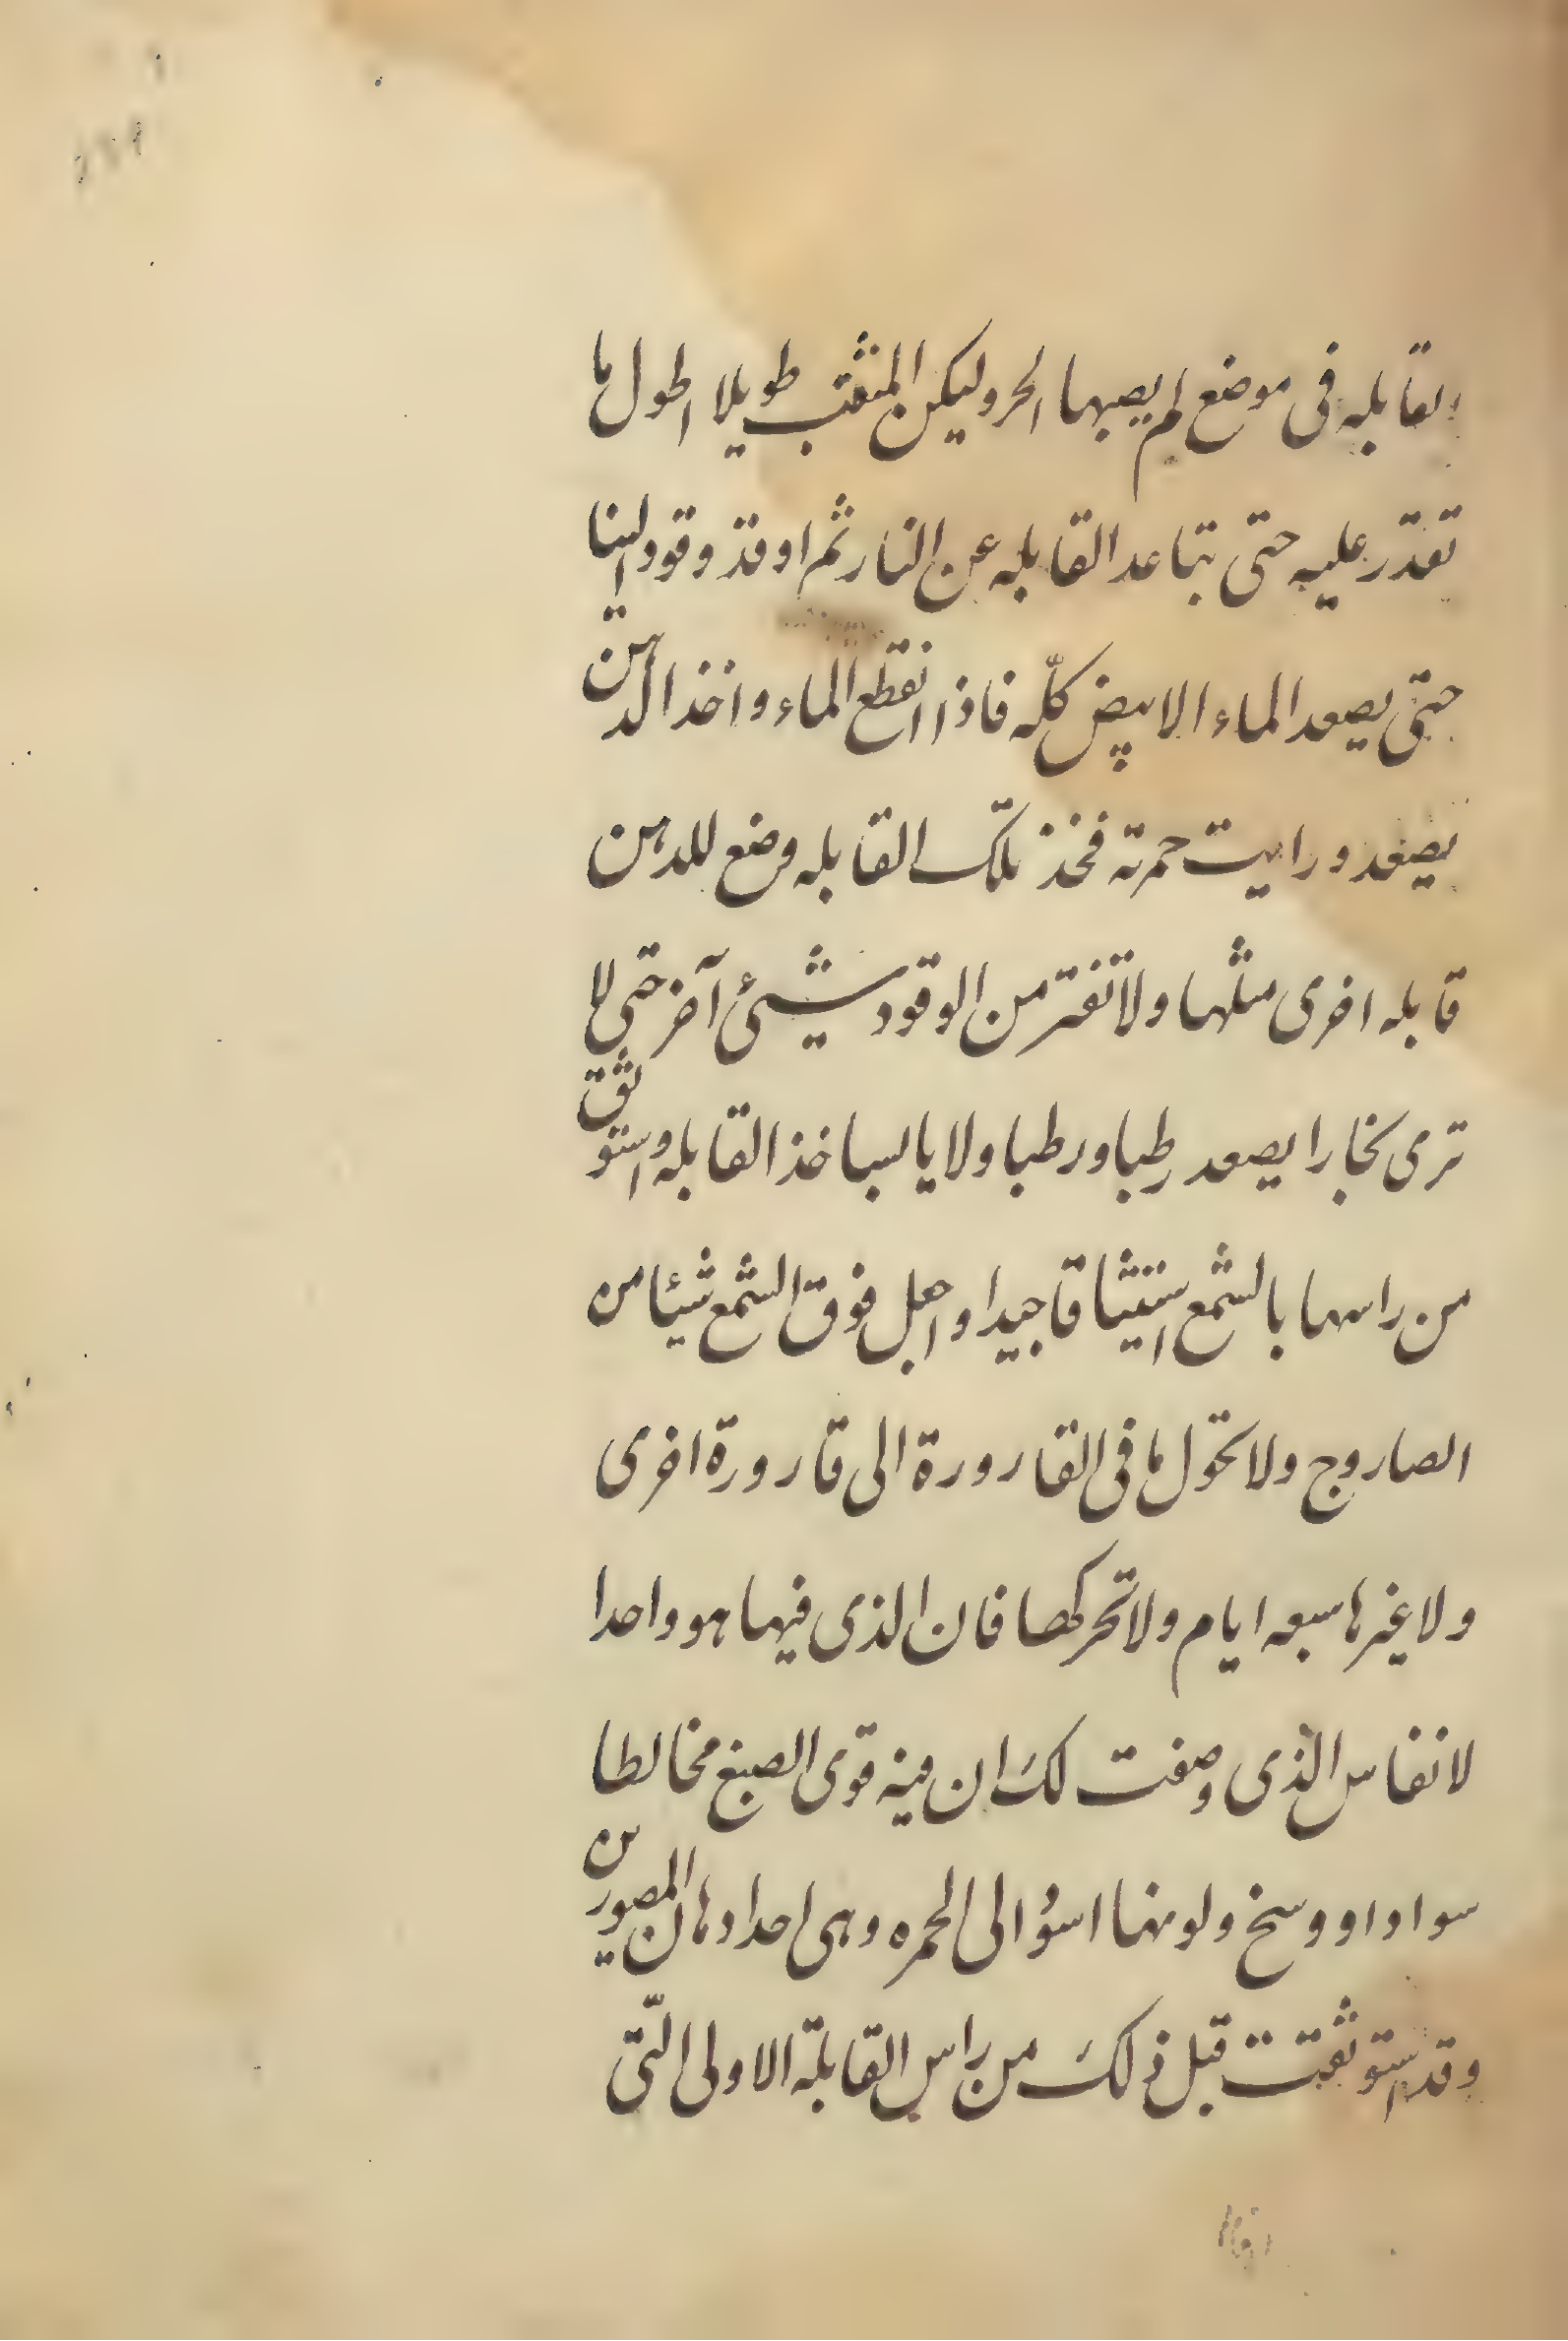 القابله فى موضع لم يصبها الحر وليكن المثقب طويلا اطول ما
تقدر عليه حتى تباعد القابله عن النار ثم اوقد وقود الينا
حتى يصعد الماء الابيض كلّه فاذا انقطع الماء واخذ الدهن
يصعد ورايت حمرته فخذ تلك القابله وضع للدهن
قابله اخرى مثلها ولا تفتر من الوقود شيئ آخر حتى لا
ترى بخارا يصعد رطبا ورطبا ولا يابسا خذ القابله واستوثق
من راسها بالشمع استيثاقا جيدا واجعل فوق الشمع شيئا من
الصاروج ولا تحول ما فى القارورة الى قارورة اخرى
ولا غيرها سبعه ايام ولا تحركها فان الذى فيها هو واحد
لانفاس الذى وصفت لك ان فيه قوى الصبغ مخالطا
سوادا ووسخ ولونها اسؤ الى الحمره وهى احد ادهان المصورين
وقد استوثقت قبل ذلك من راس القابلة الاولى التى